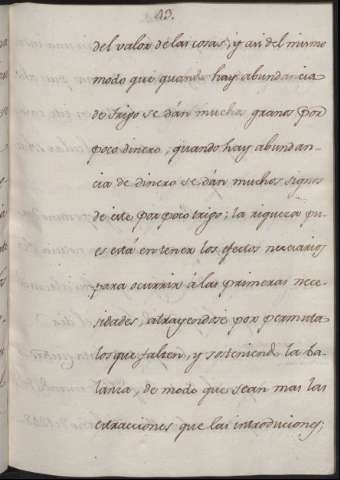 43.
del valor de las cosas, y asi del mismo
modo que quando hay abundancia
de trigo se dán muchos granos por
poco dinero, quando hay abundan-
cia de dinero se dán muchos signos
de este por poco trigo; la riqueza pu-
es está en tener los efectos necesarios
para ocurrir á las primeras nece-
sidades atrayendose por permuta
los que falten, y sosteniendo la ba-
lanza, de modo que sean mas las
extracciones que las introduciones;